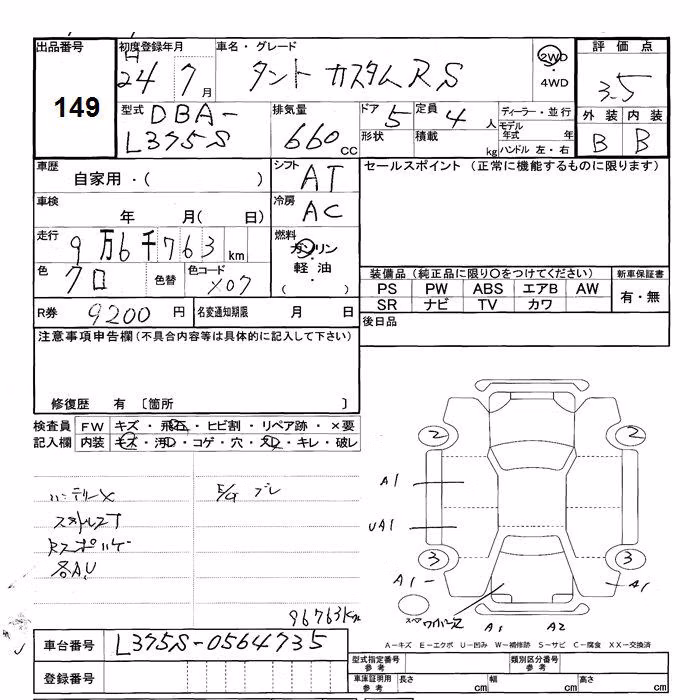 出品番号
149
初度登録年月
24 7月
車名・グレード
タント カスタムRS
2WD
・
4WD
評価点
3.5
外装 内装
B B
型式 DBA-
L375S
排気量
660 CC
ドア 5
形状
定員 4 人
積載 kg
ディーラー・並行
モデル年式 年
ハンドル 左・右
車歴
自家用・( )
シフト
AT
セールスポイント (正常に機能するものに限ります)
車検
年 月( 日)
冷房
AC
走行
9万6千763 km
燃料
ガソリン
・
軽油・
( )
色
クロ
色替
色コード
X07
装備品(純正品に限り○をつけてください)
新車保証書
PS PW ABS エアB AW
SR ナビ TV カワ
有・無
R券 9200 円
名変通知期限 月 日
後日品
注意事項申告欄(不具合内容等は具体的に記入して下さい)
修復歴 有 〔箇所 〕
検査員
記入欄
FW キズ・飛石・ヒビ割・リペア跡・×要
内装 キズ・汚れ・コゲ・穴・スレ・キレ・破レ
バッテリーX
E/G ブレ
96763Km
2 2
A1
UA1
3 3
A1
A1
A1 A2
車台番号 L375S-0564735
登録番号
A-キズ E-エクボ U-凹み W-補修跡 S-サビ C-腐食 XX-交換済
型式指定番号
参考
類別区分番号
参考
車庫証明用
参考
長さ cm 幅 cm 高さ cm